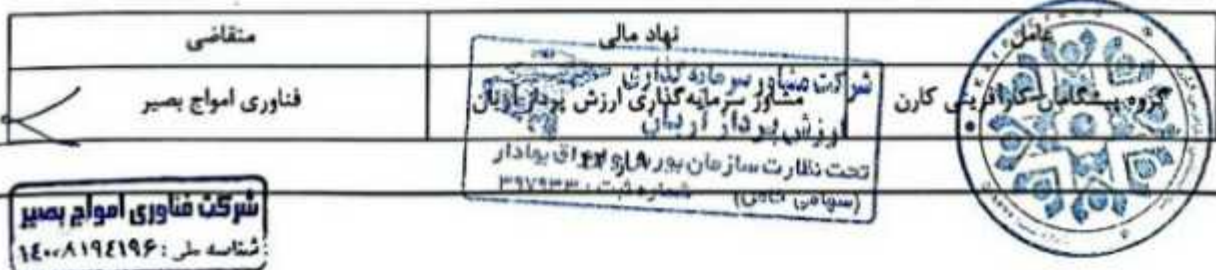 عامل نهاد مالی متقاضی
گروه پیشگامان کارآفرینی کارن مشاور سرمایه‌گذاری ارزش پرداز آریان فناوری امواج بصیر
شرکت مشاور سرمایه گذاری
ارزش پرداز آریان
تحت نظارت سازمان بورس و اوراق بهادار
(سهامی خاص) شماره ثبت : ۳۹۷۹۳۳
شرکت فناوری امواج بصیر
شناسه ملی : ۱۴۰۰۸۱۹۴۱۹۶